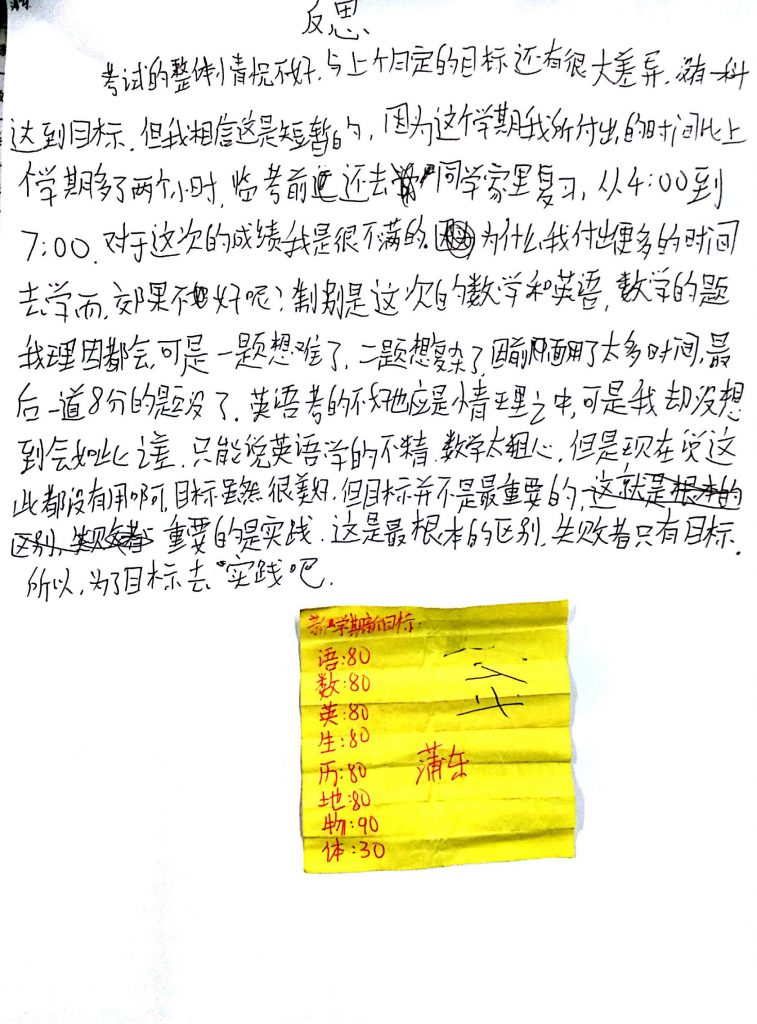 反思
考试的整体情况不好,与上个月定的目标还有很大差异,没有一科
达到目标,但我相信这是短暂的,因为这个学期我所付出的时间比上
个学期多了两个小时,临考前还去同学家里复习,从4:00到
7:00.对于这次的成绩我是很不满的.为什么我付出更多的时间
去学而,效果不好呢?特别是这次的数学和英语,数学的题
我理因都会,可是一题想难了,二题想复杂了,因前面用了太多时间,最
后一道8分的题没了.英语考的不好也应是情理之中,可是我却没想
到会如此之差,只能说英语学的不精,数学太粗心,但是现在说这
些都没有用啊,目标虽然很美好,但目标并不是最重要的,这就是根本的
区别,失败者 重要的是实践.这是最根本的区别,失败者只有目标.
所以,为了目标去实践吧.
新学期新目标:
语:80
数:80
英:80
生:80
历:80 蒲东
地:80
物:90
体:30